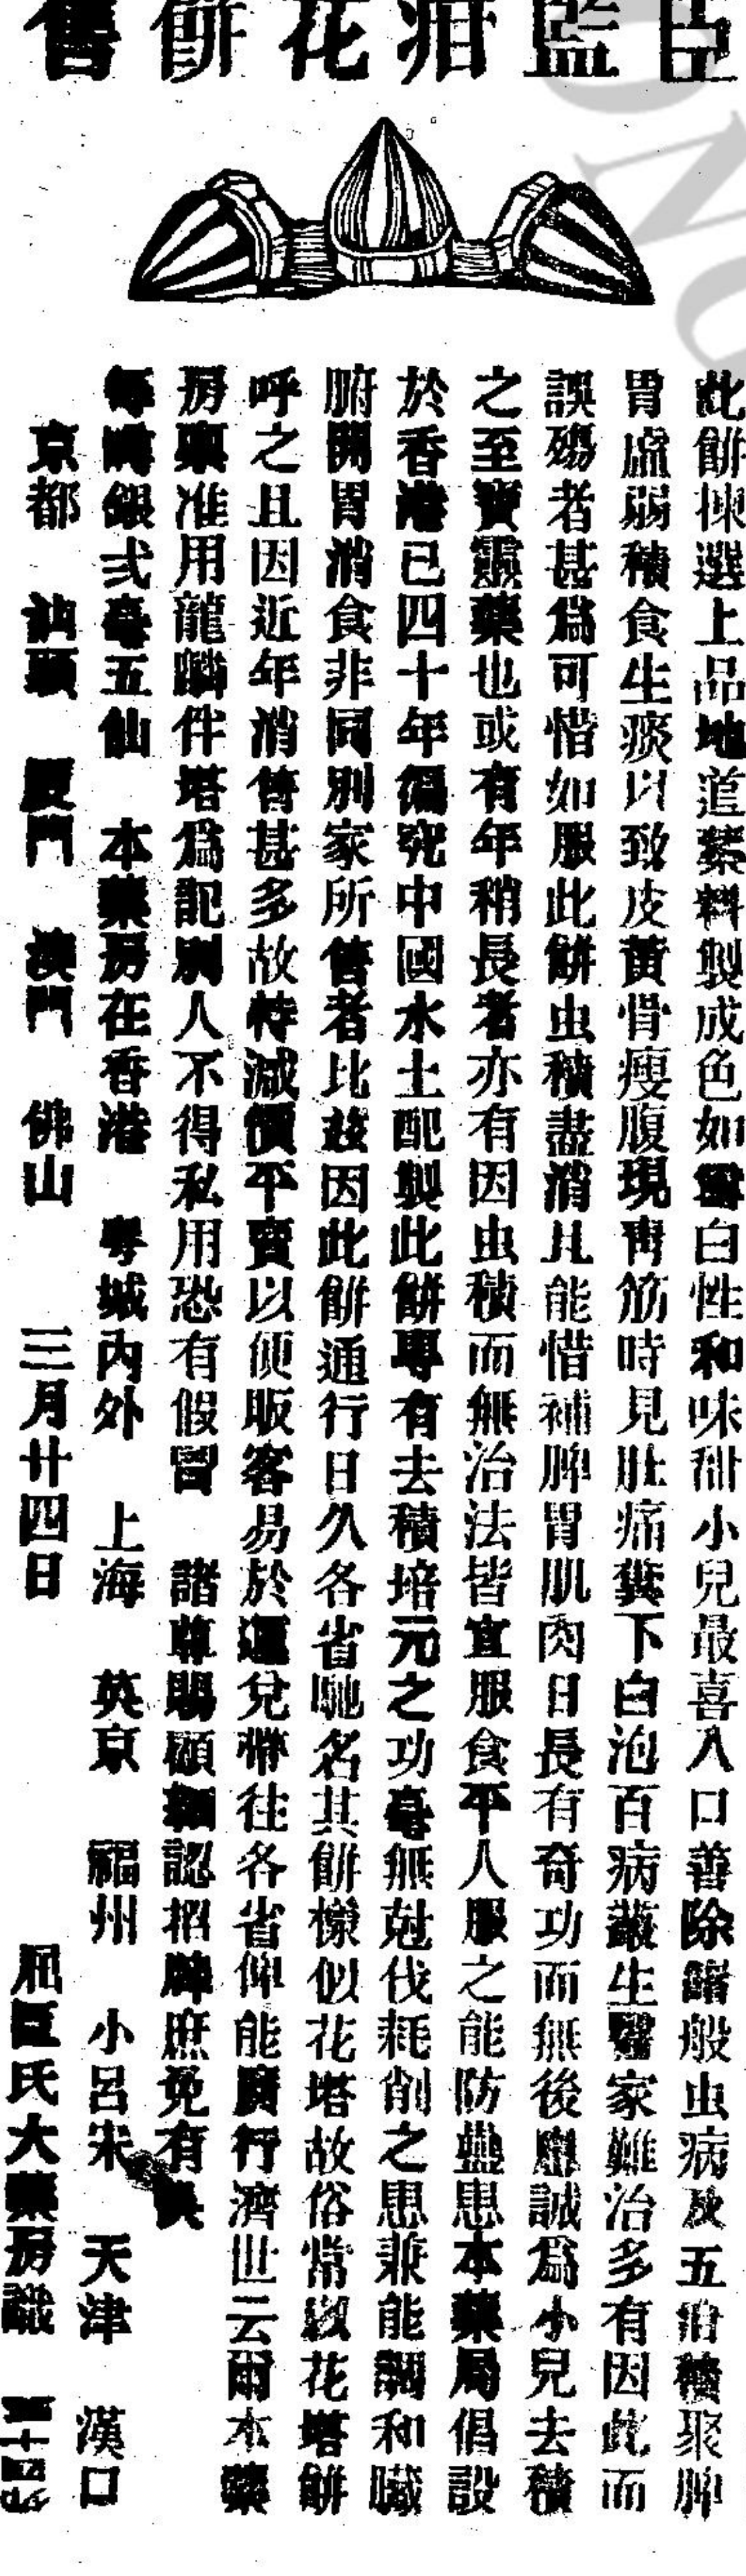 臣監疳花餅售
此餅揀選上品地道藥料製成色如雪白性和味甜小兒最喜入口善除諸般虫病及五疳積聚脾
胃虛弱積食生痰以致皮黃骨瘦腹現青筋時見肚痛糞下白泡百病叢生醫家難治多有因此而
誤殤者甚為可惜如服此餅虫積盡消且能惜補脾胃肌肉日長有奇功而無後患誠為小兒去積
之至寶靈藥也或有年稍長者亦有因虫積而無治法皆宜服食平人服之能防蠱患本藥局倡設
於香港已四十年徧究中國水土配製此餅專有去積培元之功毫無尅伐耗削之患兼能調和臟
腑開胃消食非同別家所售者比茲因此餅通行日久各省馳名其餅樣似花塔故俗常以花塔餅
呼之且因近年消售甚多故特減價平賣以便販客易於運兌帶往各省俾能廣行濟世云爾本藥
房稟准用龍麟伴塔為記別人不得私用恐有假冒 諸尊賜顧細認招牌庶免有悞
每磅銀弍毫五仙 本藥房在香港 粵城內外 上海 英京 福州 小呂宋 天津 漢口
京都 汕頭 厦門 澳門 佛山 三月廿四日 屈臣氏大藥房識